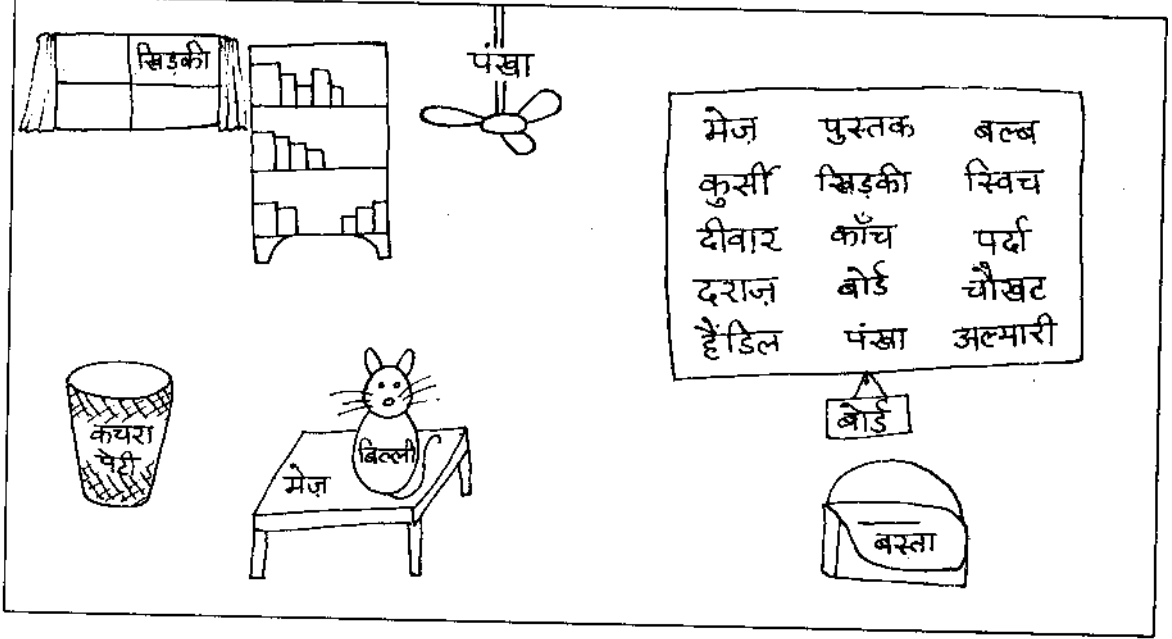 खिड़की
पंखा
मेज़ पुस्तक बल्ब
कुर्सी खिड़की स्विच
दीवार काँच पर्दा
दराज़ बोर्ड चौखट
हैंडिल पंखा अल्मारी
बोर्ड
कचरा
पेटी
मेज़
बिल्ली
बस्ता